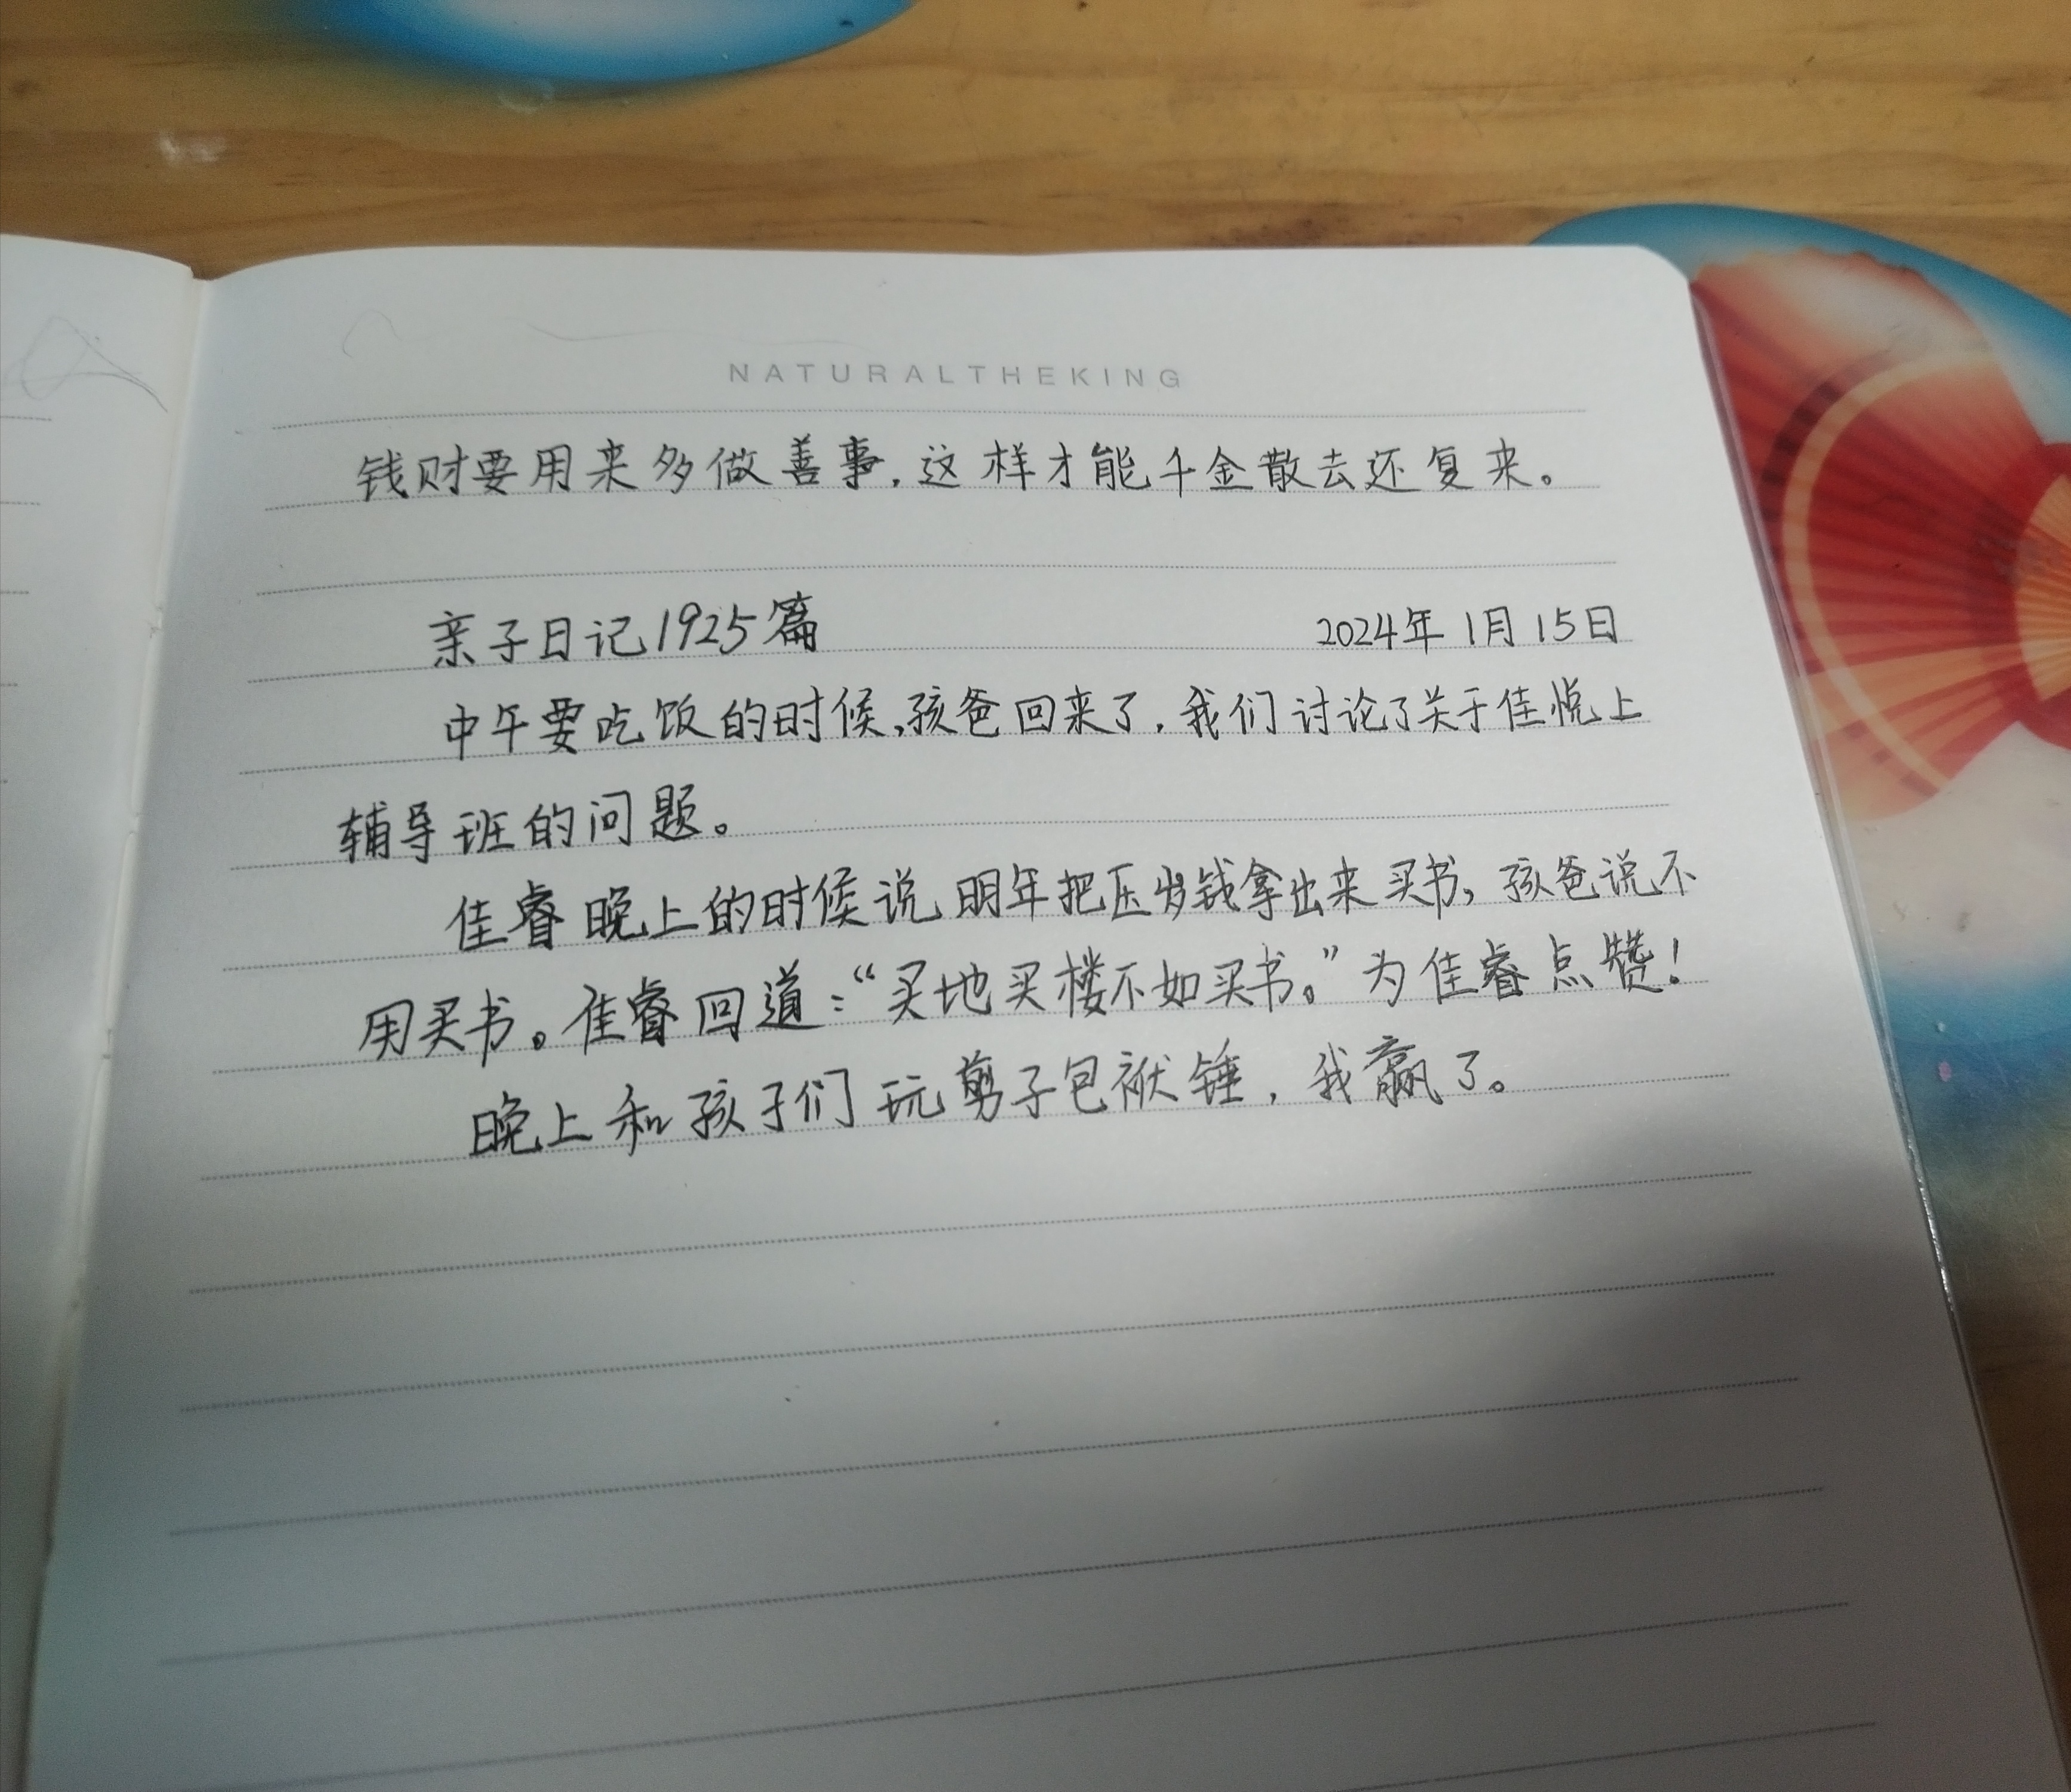 NATURALTHEKING
钱财要用来多做善事,这样才能千金散去还复来。
亲子日记1925篇 2024年1月15日
中午要吃饭的时候,孩爸回来了,我们讨论了关于佳悦上
辅导班的问题。
佳睿晚上的时候说明年把压岁钱拿出来买书,孩爸说不
用买书。佳睿回道:“买地买楼不如买书。”为佳睿点赞!
晚上和孩子们玩剪子包袱锤,我赢了。